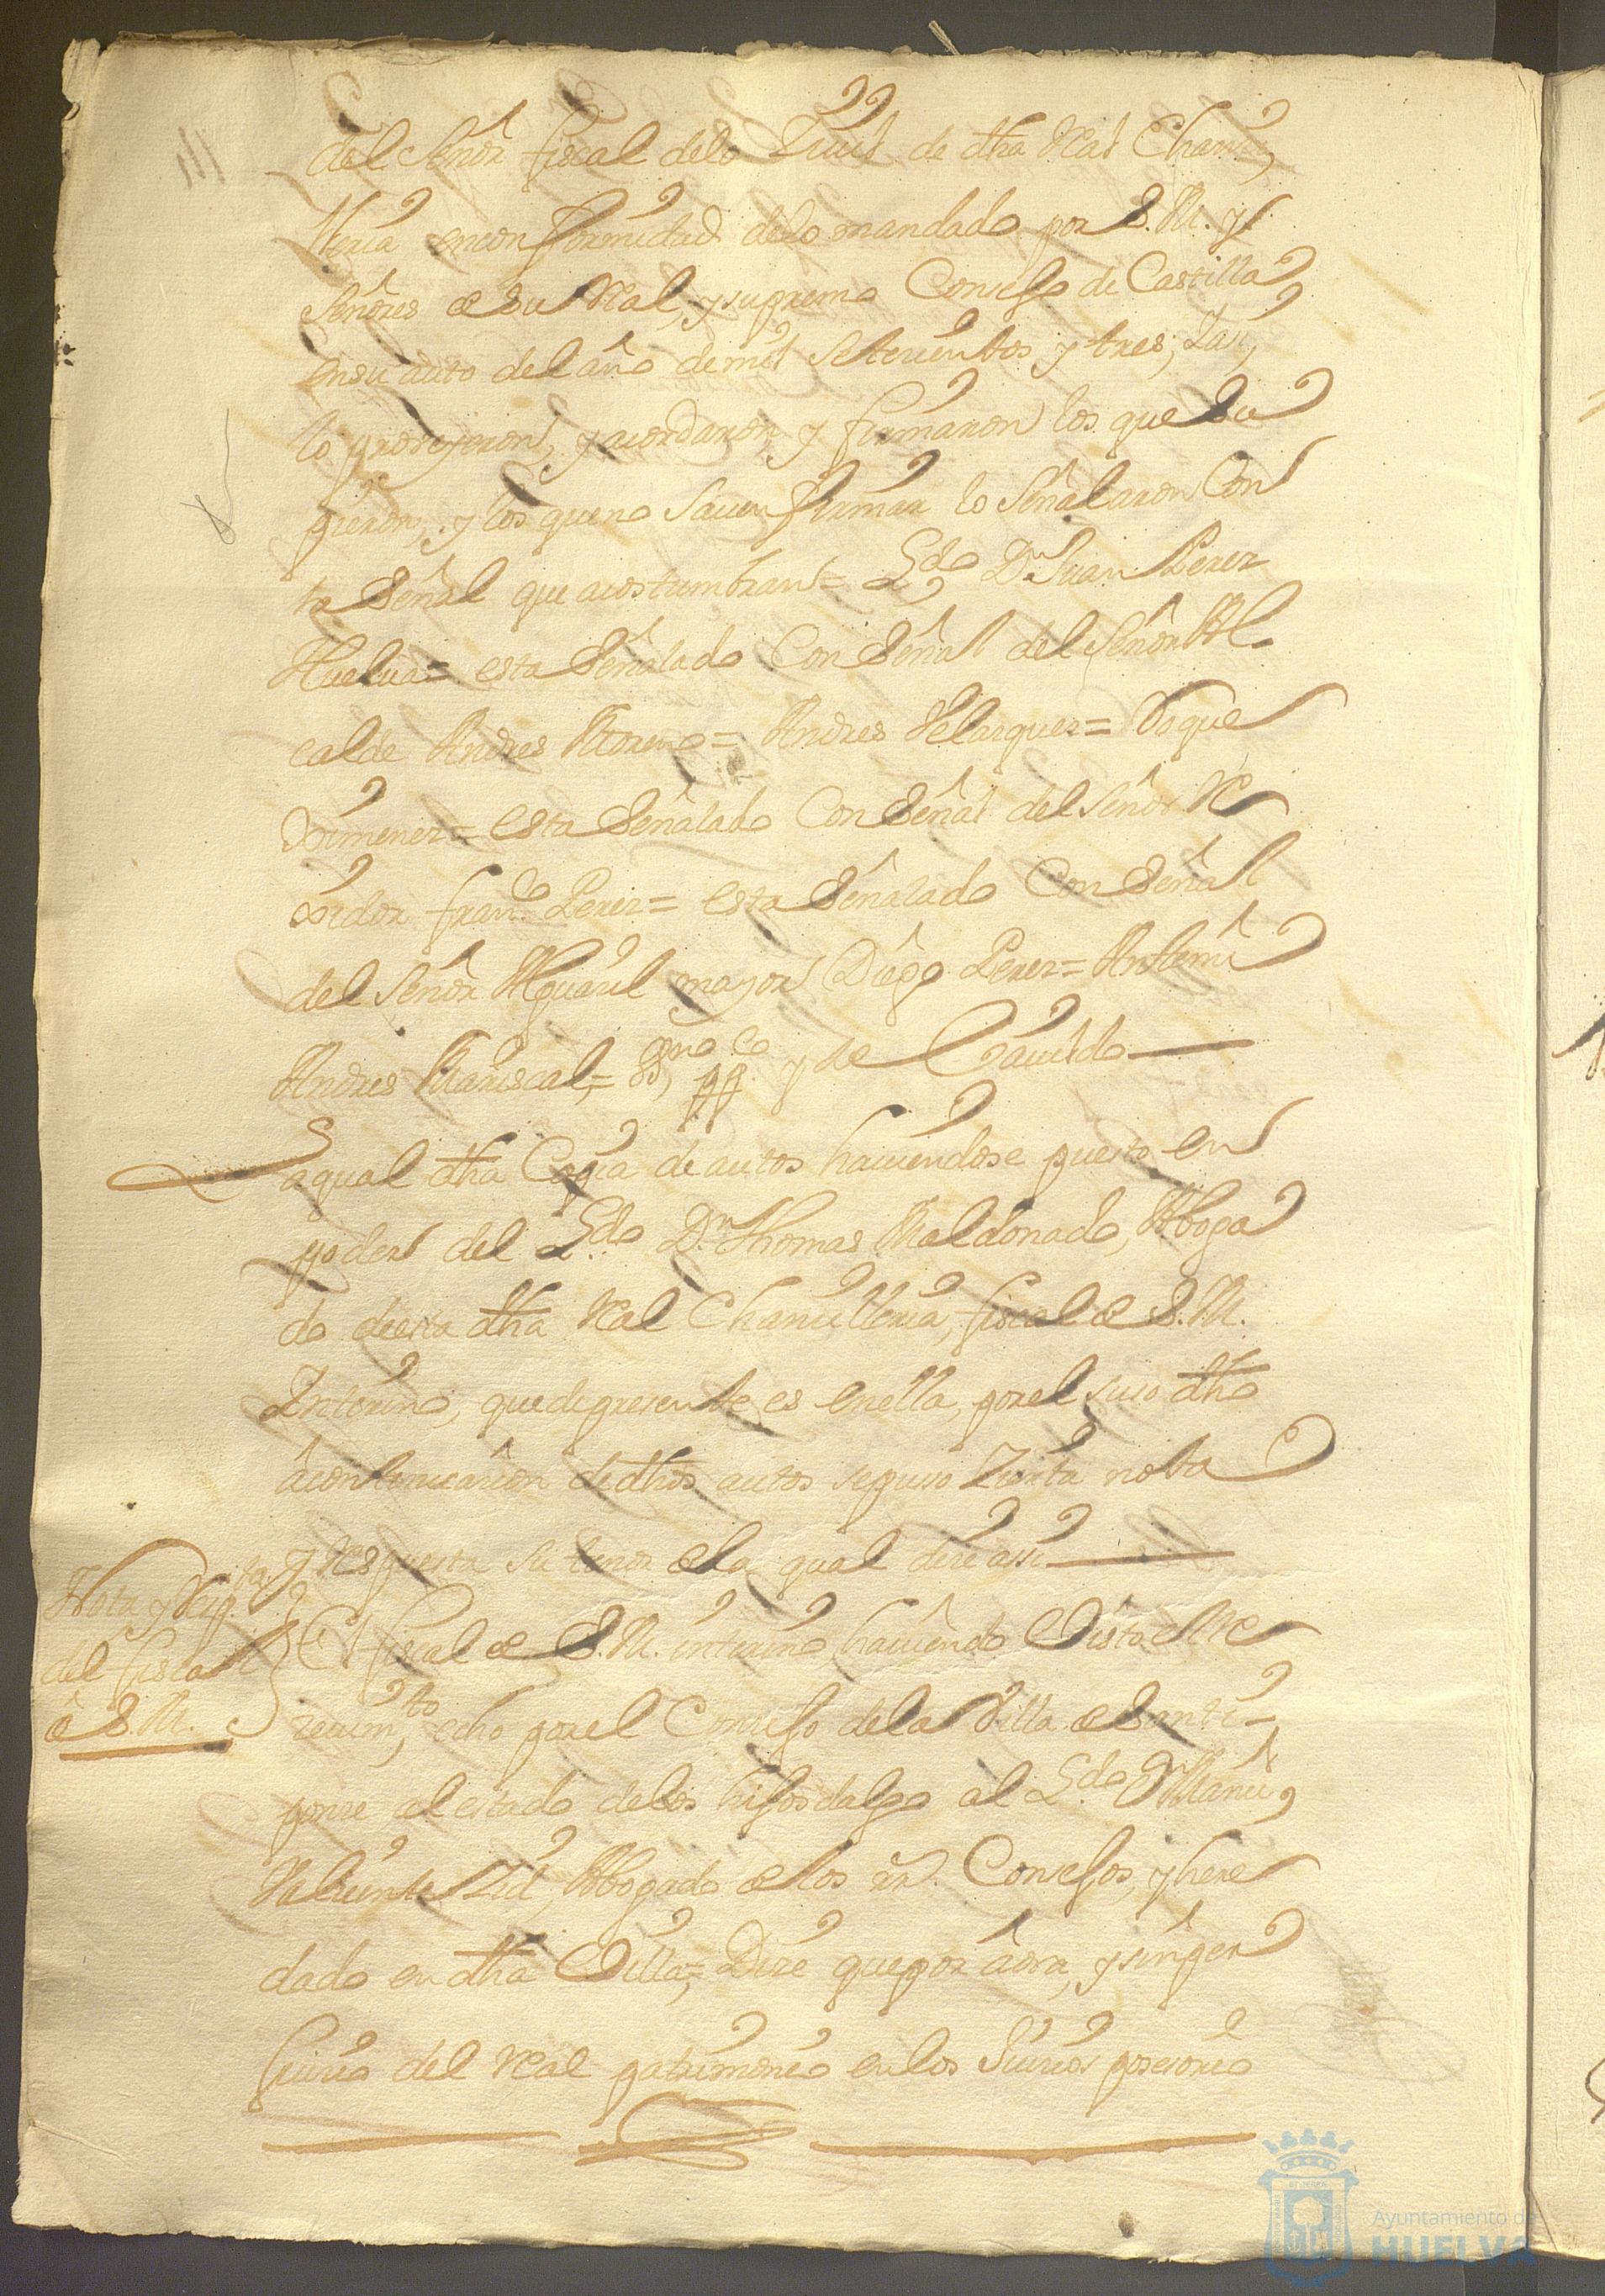 del señor fiscal de lo Zivil de dha Real Chanzi
lleria en conformidad de lo mandado por S. M. y
señores de su Real, y supremo Consejo de Castilla
en su auto del año de mil setecientos y tres; I asi
lo proveyeron, y acordaron y firmaron los que su
pieron, y los que no saven firmar lo señalaron Con
la Señal que acostumbran = Lzdo Dn Juan Perez
Huelva = esta Señalado Con Señal del Señor Al
calde Andres Moreno = Andres Velazquez = Roque
Ximenez = esta Señalado Con Señal del Señor Re
xidor franco Perez = esta Señalado Con Señal
del Señor Alguazil mayor Diego Perez = Antemi
Andres Mariscal, = SSno ppco y de Cavildo
La qual dha Copia de autos haviendose puesto en
poder del Lzdo Dn Thomas Maldonado, Aboga
do de esta dha Real Chanzilleria, fiscal de S. M.
Interino, que de presente es en ella, por el suso dho
à continuazion de dhos autos se puso Zierta nota
y respuesta su tenor de la qual dize assi
Nota y Respta
del fiscal
de S. M.
El fiscal de S. M. interino haviendo Visto el Re
zivimto echo por el Consejo de la Villa de Santi
ponze al estado de los hijosdalgo al Lzdo Dn Manl
Valiente Zid, Abogado de los Rs. Consejos, y here
dado en dha Villa, = Dize que por àora, y sin per
juizio del Real patrimonio en los Juizios posesorio
Ayuntamiento de
HUELVA